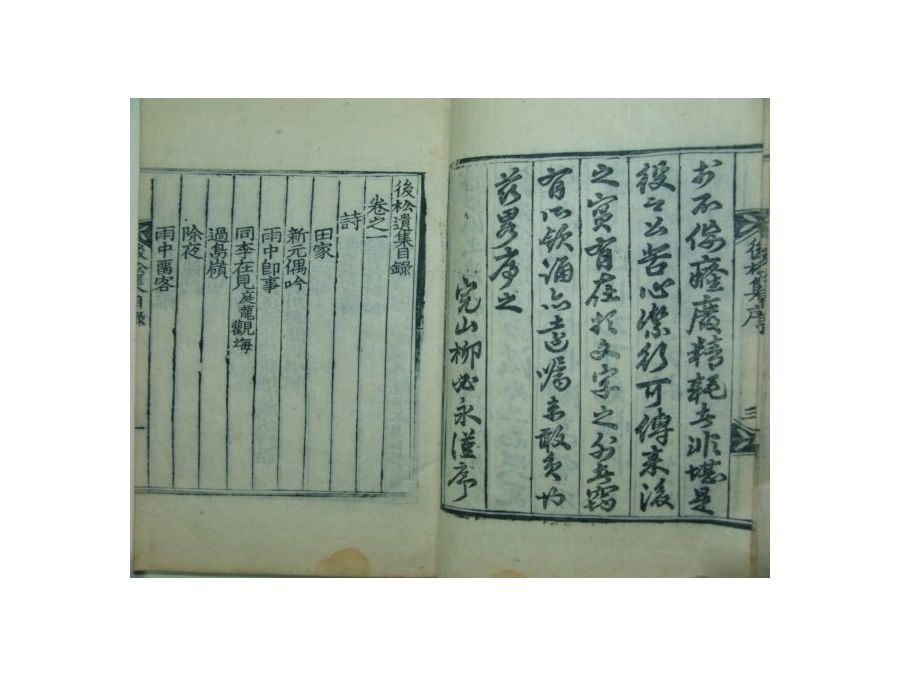 於不佞癃廢精耗無非堪是
役之公苦心潔行可傳來後
之實有在於文字之外無窮
有以欽誦亡遺囑未敢負
茲畧序之
完山柳必永謹序
後松集序
三
後松遺集目錄
卷之一
詩
田家
新元偶吟
雨中卽事
同李在見庭龍觀海
過鳥嶺
除夜
雨中留客
後松集目錄
一